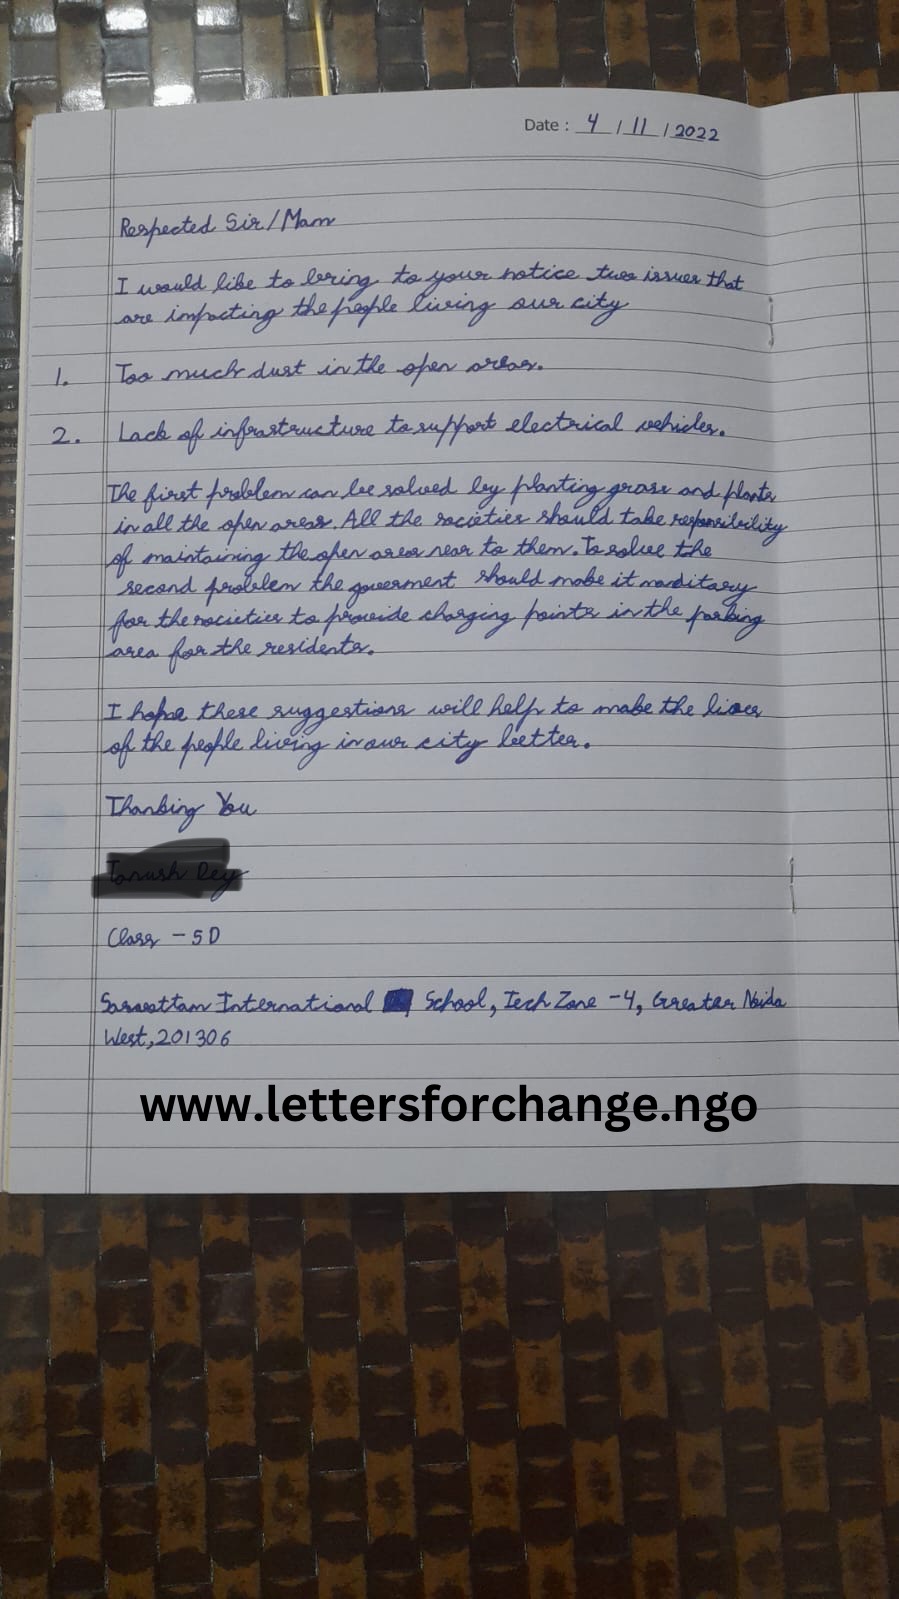 Date : 4 / 11 / 2022
Respected Sir/Mam
I would like to bring to your notice two issues that
are impacting the people living our city
1. Too much dust in the open areas.
2. Lack of infrastructure to support electrical vehicles.
The first problem can be solved by planting grass and plants
in all the open areas. All the societies should take responsibility
of maintaining the open areas near to them. To solve the
second problem the goverment should make it manditary
for the societies to provide charging points in the parking
area for the residents.
I hope these suggestions will help to make the lives
of the people living in our city better.
Thanking You
Class - 5D
International School, Tech Zone - 4, Greater Noida
West, 201306
www.lettersforchange.ngo